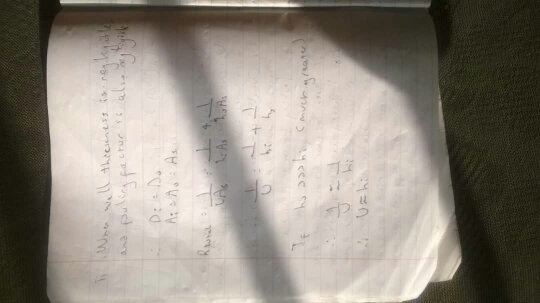 When wall thickness is negligible
and fouling factor is also negligible
∴ Di = Do
Ai = Ao = As
= 1/UAs = 1/hiAs + 1/hoAs
∴ 1/U = 1/hi + 1/ho
If ho >>> hi (much greater)
∴ 1/U ≈ 1/hi
∴ U ≈ hi